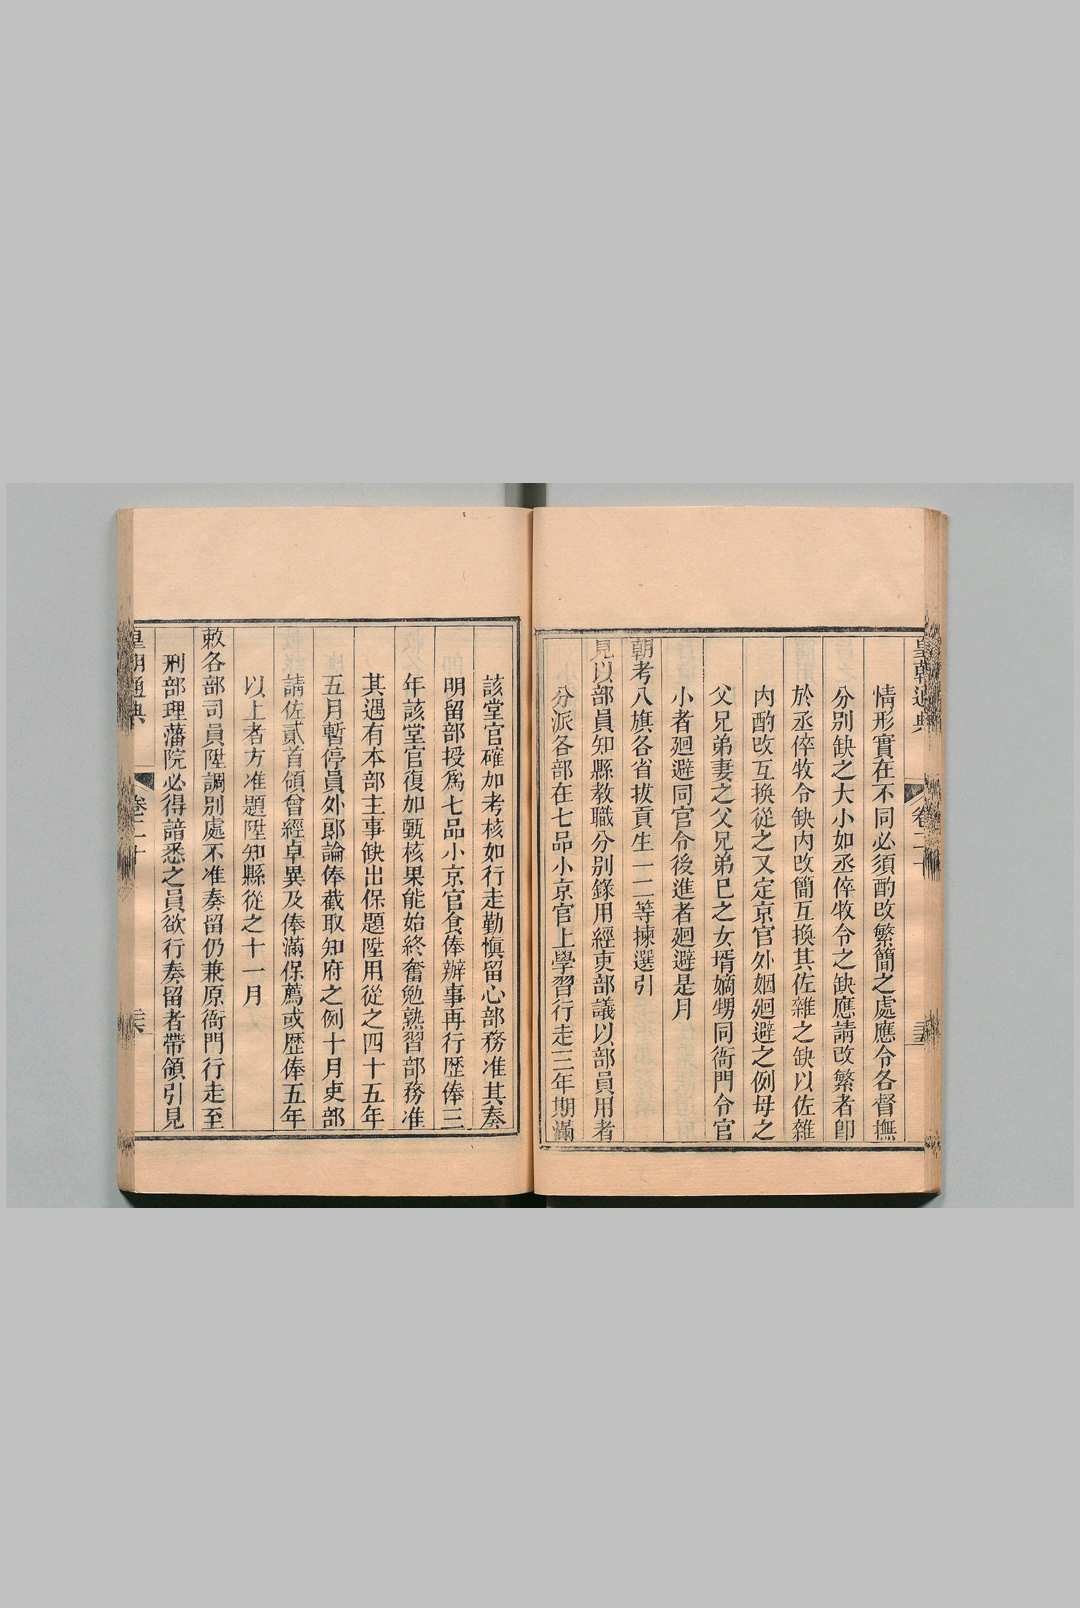 皇朝通典
卷二十
情形實在不同必須酌改繁簡之處應令各督撫
分別缺之大小如丞倅牧令之缺應請改繁者卽
於丞倅牧令缺內改簡互換其佐雜之缺以佐雜
內酌改互換從之又定京官外姻廻避之例母之
父兄弟妻之父兄弟巳之女壻嫡甥同衙門令官
小者廻避同官令後進者廻避是月
朝考八旗各省拔貢生一二等揀選引
見以部員知縣教職分別錄用經吏部議以部員用者
分派各部在七品小京官上學習行走三年期滿
該堂官確加考核如行走勤愼留心部務准其奏
明留部授爲七品小京官食俸辦事再行歷俸三
年該堂官復加甄核果能始終奮勉熟習部務准
其遇有本部主事缺出保題陞用從之四十五年
五月暫停員外郎論俸截取知府之例十月吏部
請佐貳首領曾經卓異及俸滿保薦或歷俸五年
以上者方准題陞知縣從之十一月
敕各部司員陞調別處不准奏留仍兼原衙門行走至
刑部理藩院必得諳悉之員欲行奏留者帶領引見
皇朝通典
卷二十